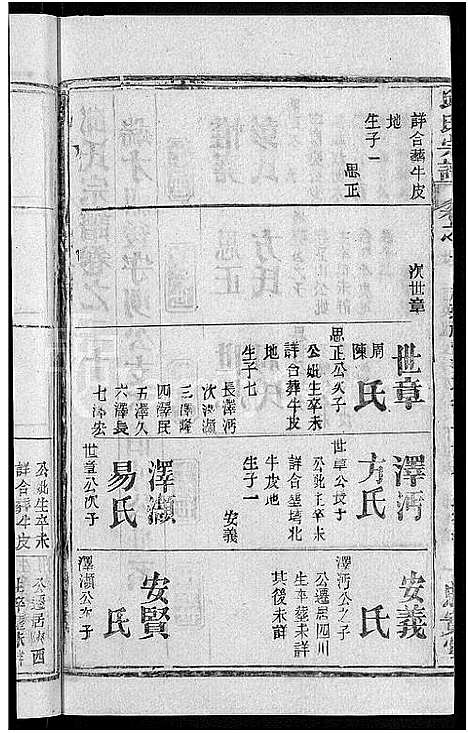 詳合葬牛皮
地
生子一
思正
次世章
世章
周
陳
氏
思正公次子
公妣生卒未
詳合葬牛皮
地
生子七
長澤沔
次澤瀨
三澤隆
四澤民
五澤久
六澤長
七澤宏
澤沔
方氏
世章公長子
公妣生卒未
詳合葬塆北
牛皮地
生子一
安義
澤瀨
易氏
世章公次子
公妣生卒未
詳合葬牛皮
安義
氏
澤沔公之子
公遷居四川
生卒葬未詳
其後未詳
安賢
氏
澤瀨公之子
公遷居陝西
生卒葬未詳